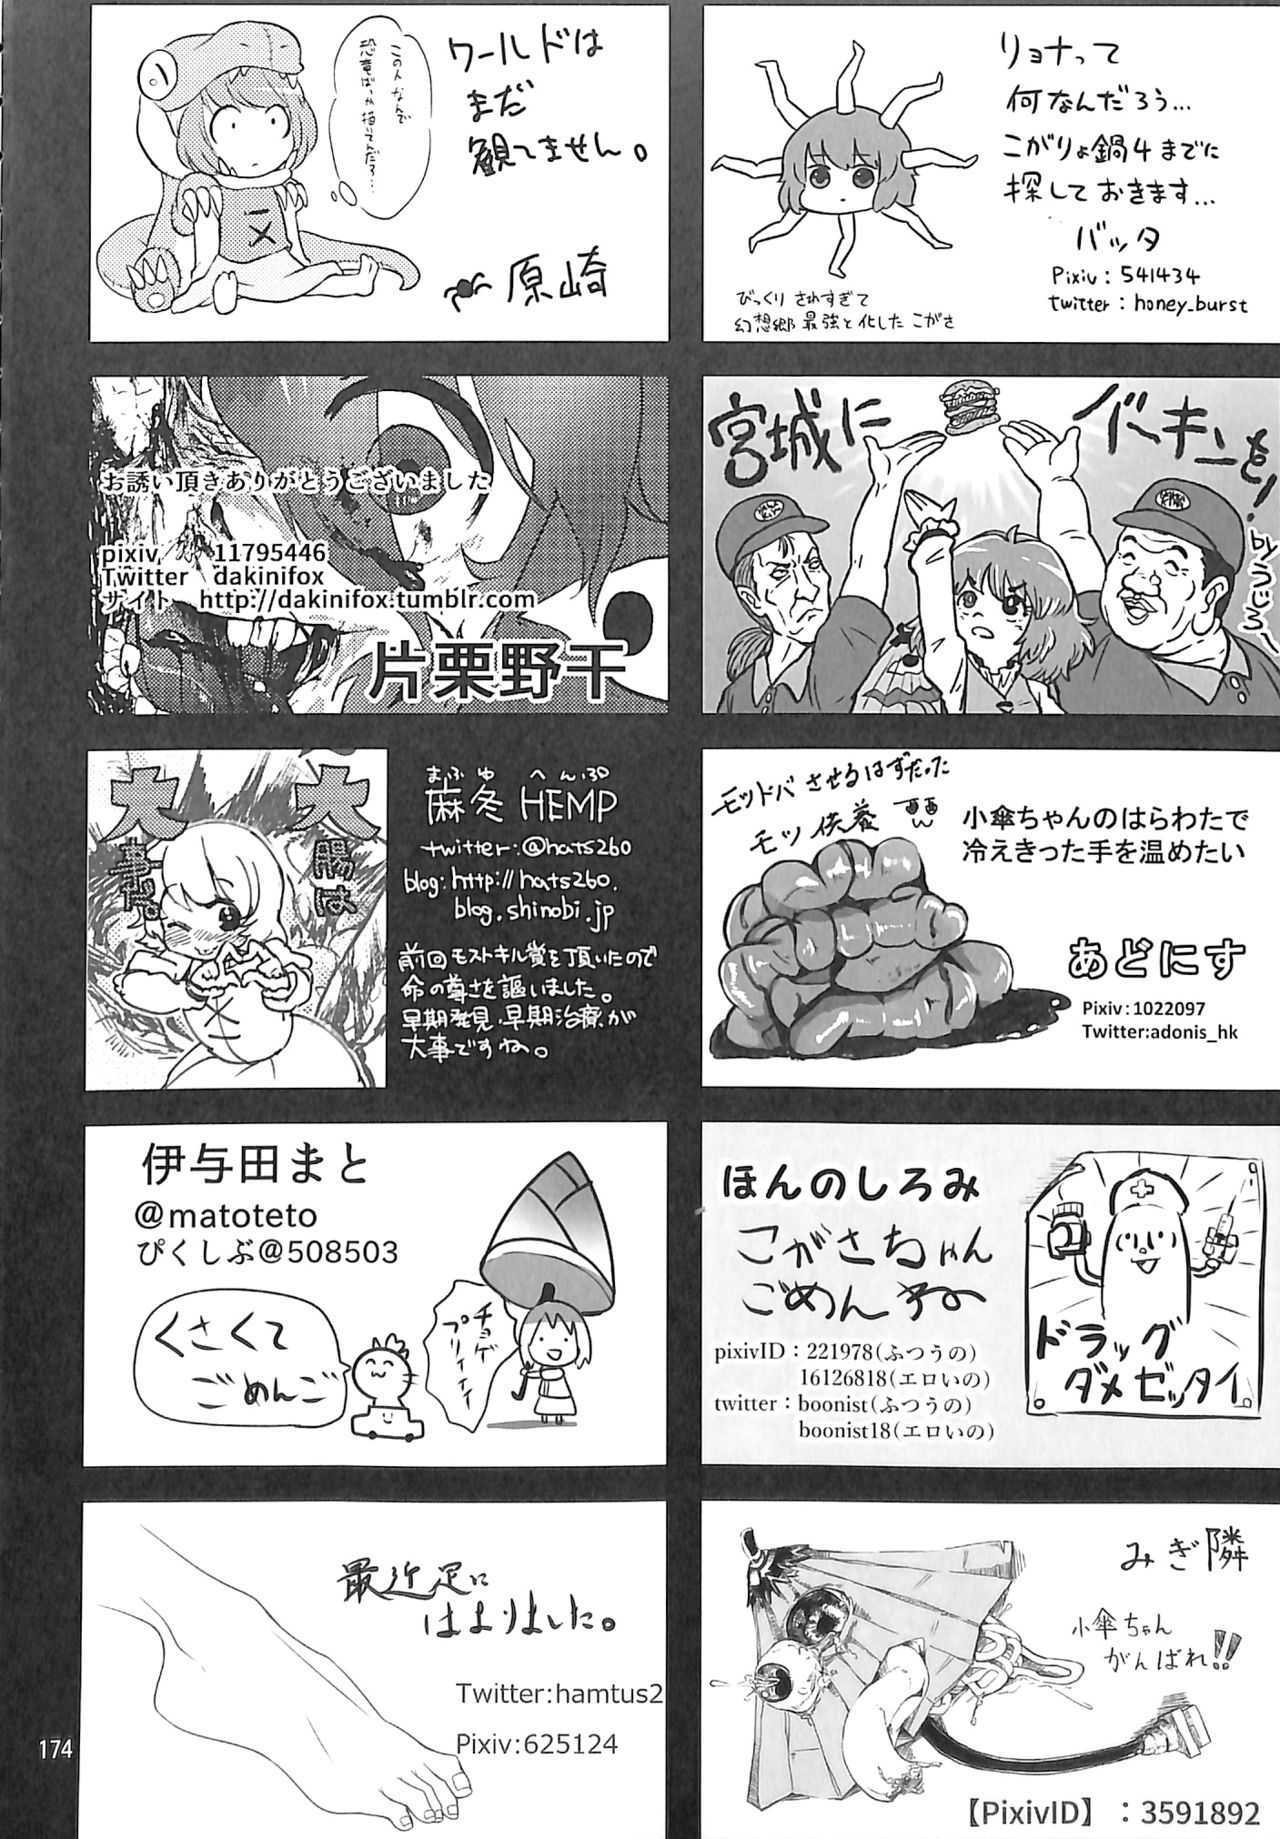 ワールドは
まだ
観てません。
この人なんで
恐竜ばっか描いてんだろ…
原崎
リョナって
何なんだろう…
こがりょ鍋4までに
探しておきます…
バッタ
Pixiv：541434
twitter：honey_burst
びっくりされすぎて
幻想郷最強と化したこがさ
お誘い頂きありがとうございました
pixiv 11795446
Twitter dakinifox
サイト http://dakinifox.tumblr.com
片栗野干
宮城に
バーキンを！
byうじろー
大腸は
大事。
まふゆ へんぷ
麻冬 HEMP
twitter:@hats260
blog:http://hats260.
blog.shinobi.jp
前回モストキル賞を頂いたので
命の尊さを謳いました。
早期発見、早期治療が
大事ですね。
モッドバさせるはずだった
モツ供養
小傘ちゃんのはらわたで
冷えきった手を温めたい
あどにす
Pixiv:1022097
Twitter:adonis_hk
伊与田まと
@matoteto
ぴくしぶ@508503
くさくて
ごめんご
チョゲ
プリィィィ
ほんのしろみ
こがさちゃん
ごめんね
pixivID：221978(ふつうの)
16126818(エロいの)
twitter：boonist(ふつうの)
boonist18(エロいの)
ドラッグ
ダメゼッタイ
最近足に
はまりました。
Twitter:hamtus2
Pixiv:625124
みぎ隣
小傘ちゃん
がんばれ!!
【PixivID】：3591892
174